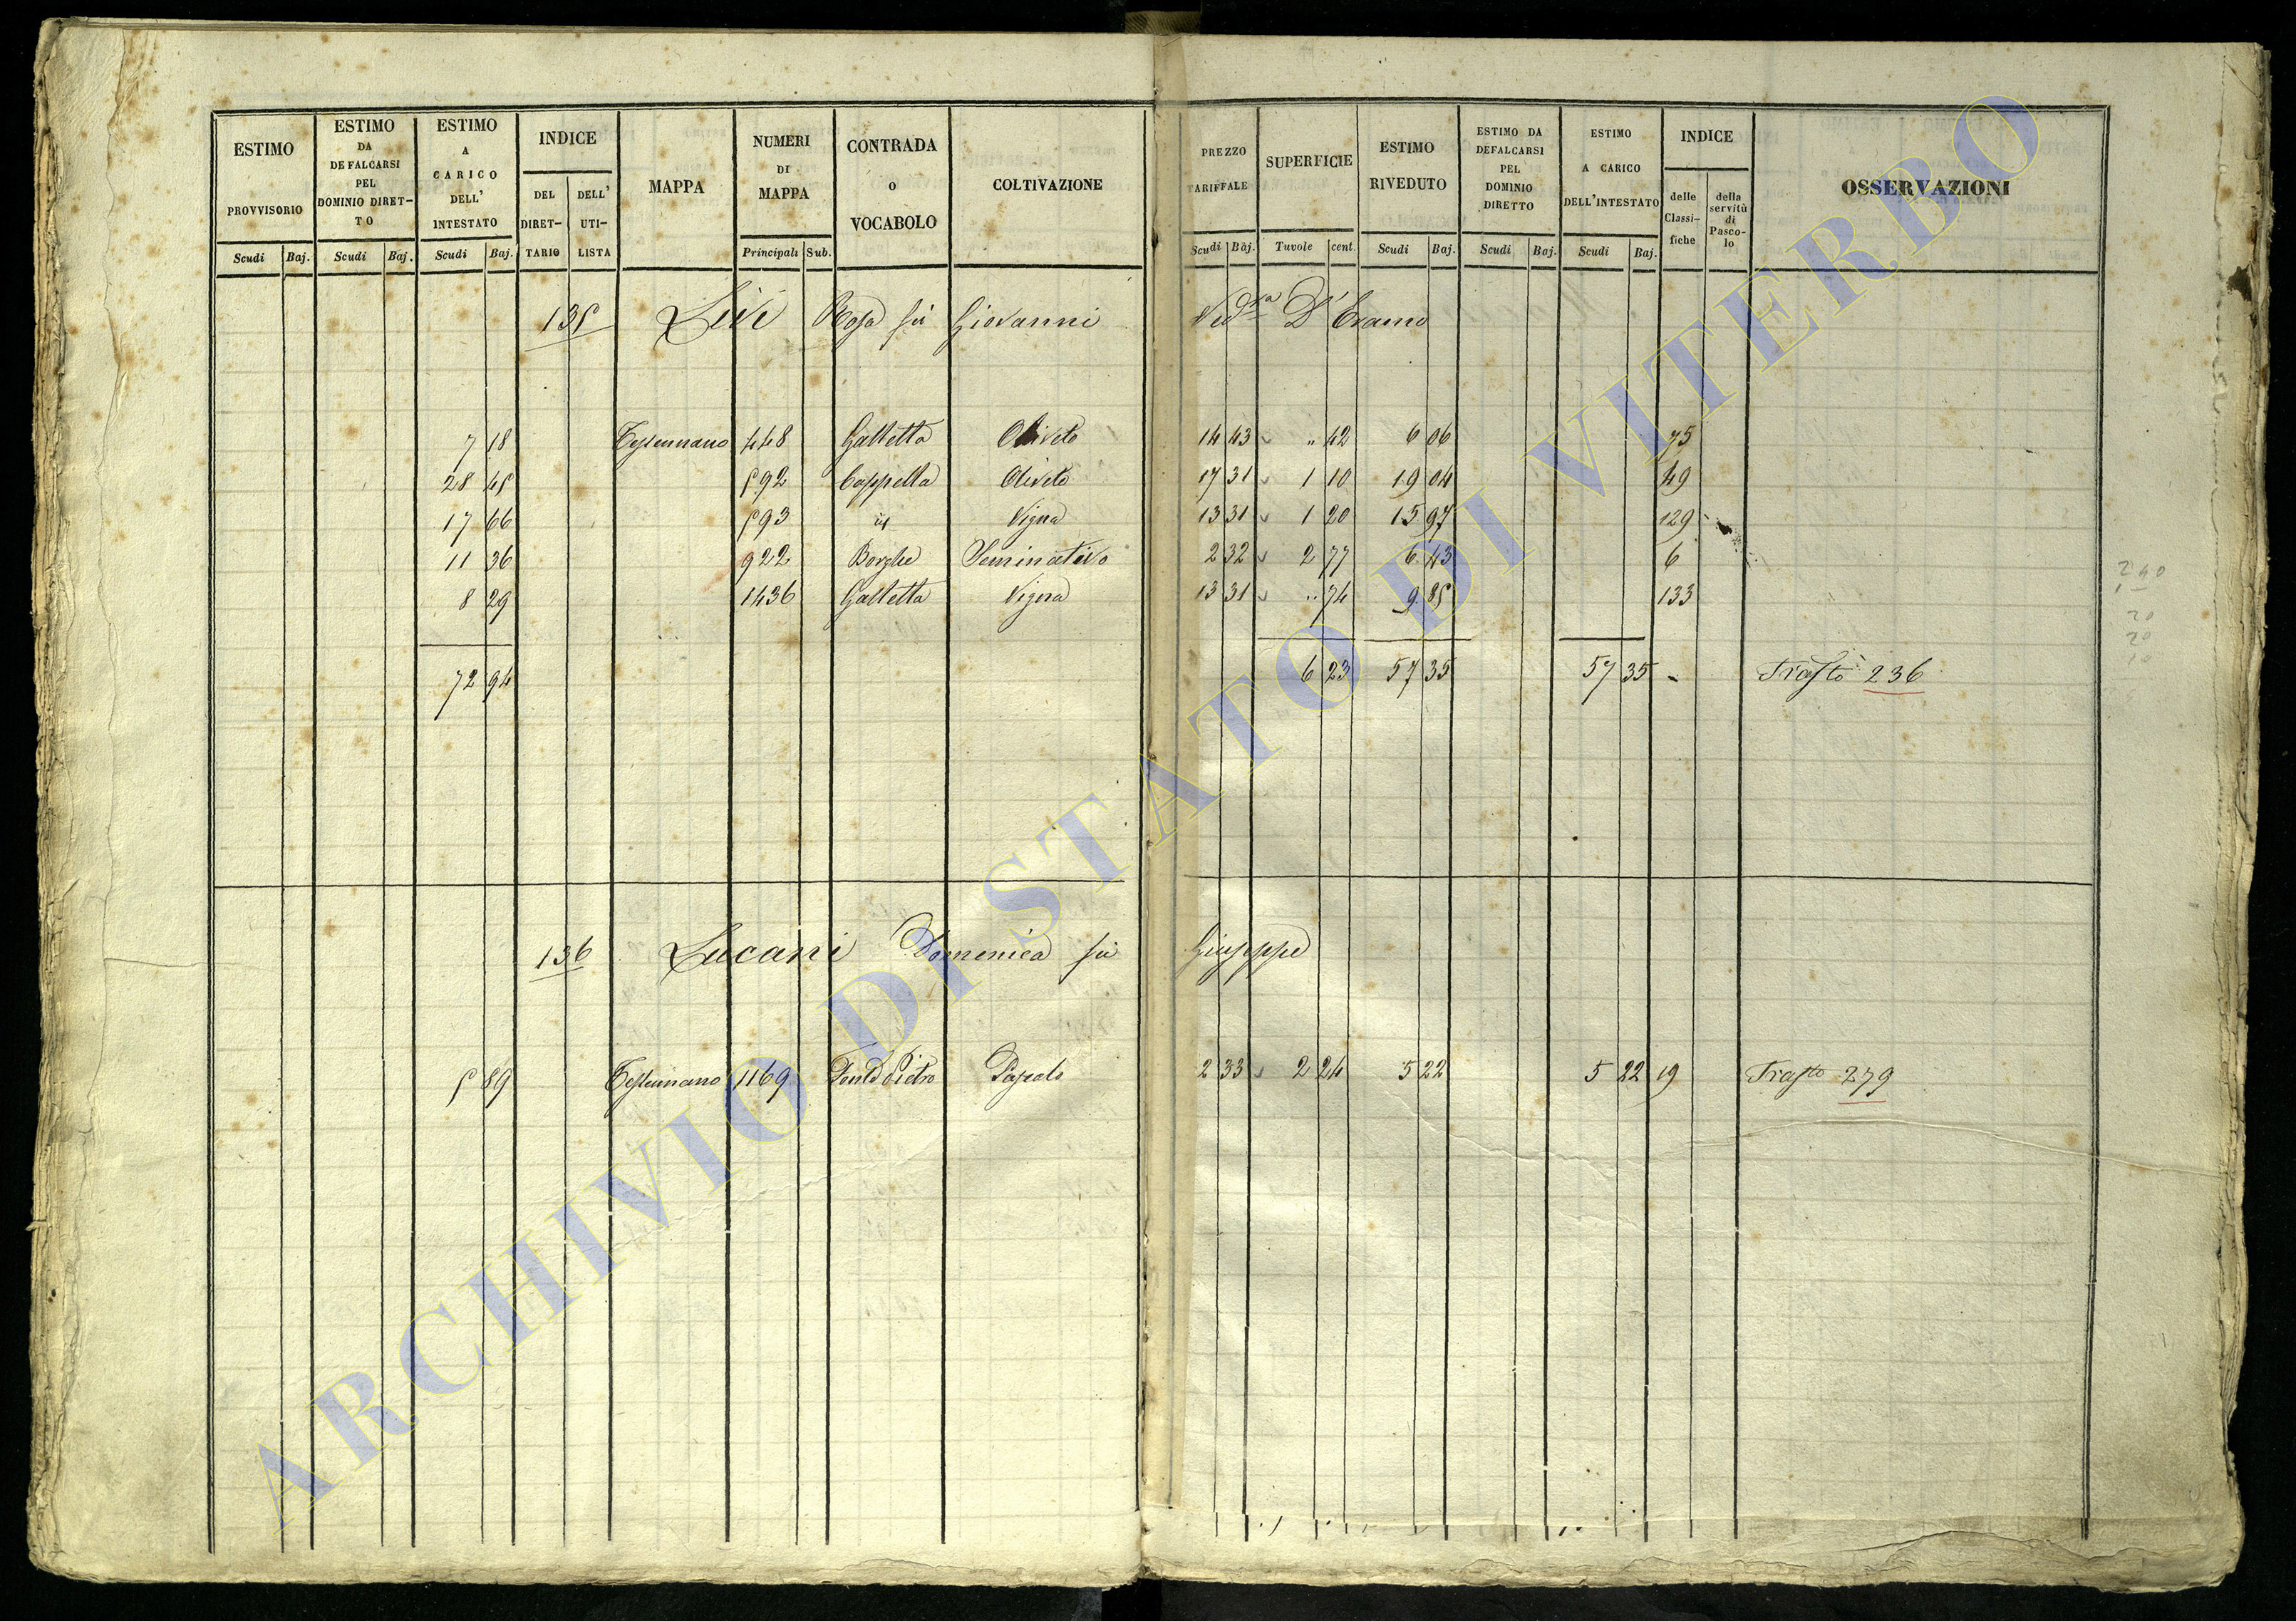 ESTIMO PROVVISORIO Scudi Baj.
ESTIMO DA DEFALCARSI PEL DOMINIO DIRETTO Scudi Baj.
ESTIMO A CARICO DELL' INTESTATO Scudi Baj.
INDICE DEL DIRETTARIO DELL' UTILISTA
MAPPA
NUMERI DI MAPPA Principali Sub.
CONTRADA O VOCABOLO
COLTIVAZIONE
PREZZO TARIFFALE Scudi Baj.
SUPERFICIE Tavole cent.
ESTIMO RIVEDUTO Scudi Baj.
ESTIMO DA DEFALCARSI PEL DOMINIO DIRETTO Scudi Baj.
ESTIMO A CARICO DELL'INTESTATO Scudi Baj.
INDICE delle Classifiche della servitù di Pascolo
OSSERVAZIONI
135 Livi Rosa fu Giovanni Ved.va D'Eramo
7 18 448 Galletta Oliveto 14 43 " 42 6 06 75
28 45 592 Cappella Oliveto 17 31 1 10 19 04 49
17 66 593 id Vigna 13 31 1 20 15 97 129
11 36 922 Borghe Seminativo 2 32 2 77 6 43 6
8 29 1436 Galletta Vigna 13 31 " 74 9 85 133
72 94 6 23 57 35 57 35 - Trasto 236
136 Lucani Domenica fu Giuseppe
5 89 1169 Pascolo 2 33 2 24 5 22 5 22 19 Trasto 279
ARCHIVIO DI STATO DI VITERBO